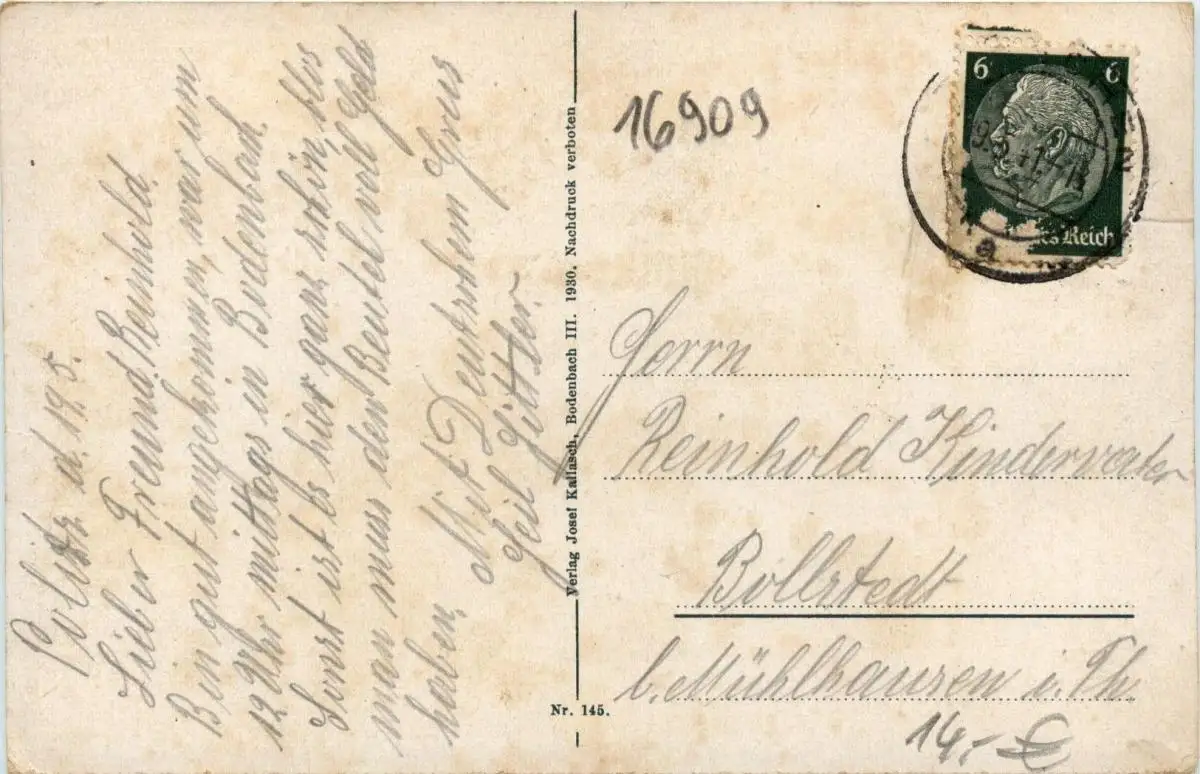 Politz d. 19.5.
Lieber Freund Reinhold.
Bin gut angekommen, war um
12 Uhr mittags in Bodenbach.
Sonst ist es hier ganz schön, blos
man muss den Beutel voll Geld
haben.
Mit Deutschem Grus
Heil Hitler.
Verlag Josef Kallasch, Bodenbach III. 1930. Nachdruck verboten
Nr. 145.
16909
6 6
Reich
a
Herrn
Reinhold Kindervater
Bollstedt
b. Mühlhausen i. Th.
14,- €